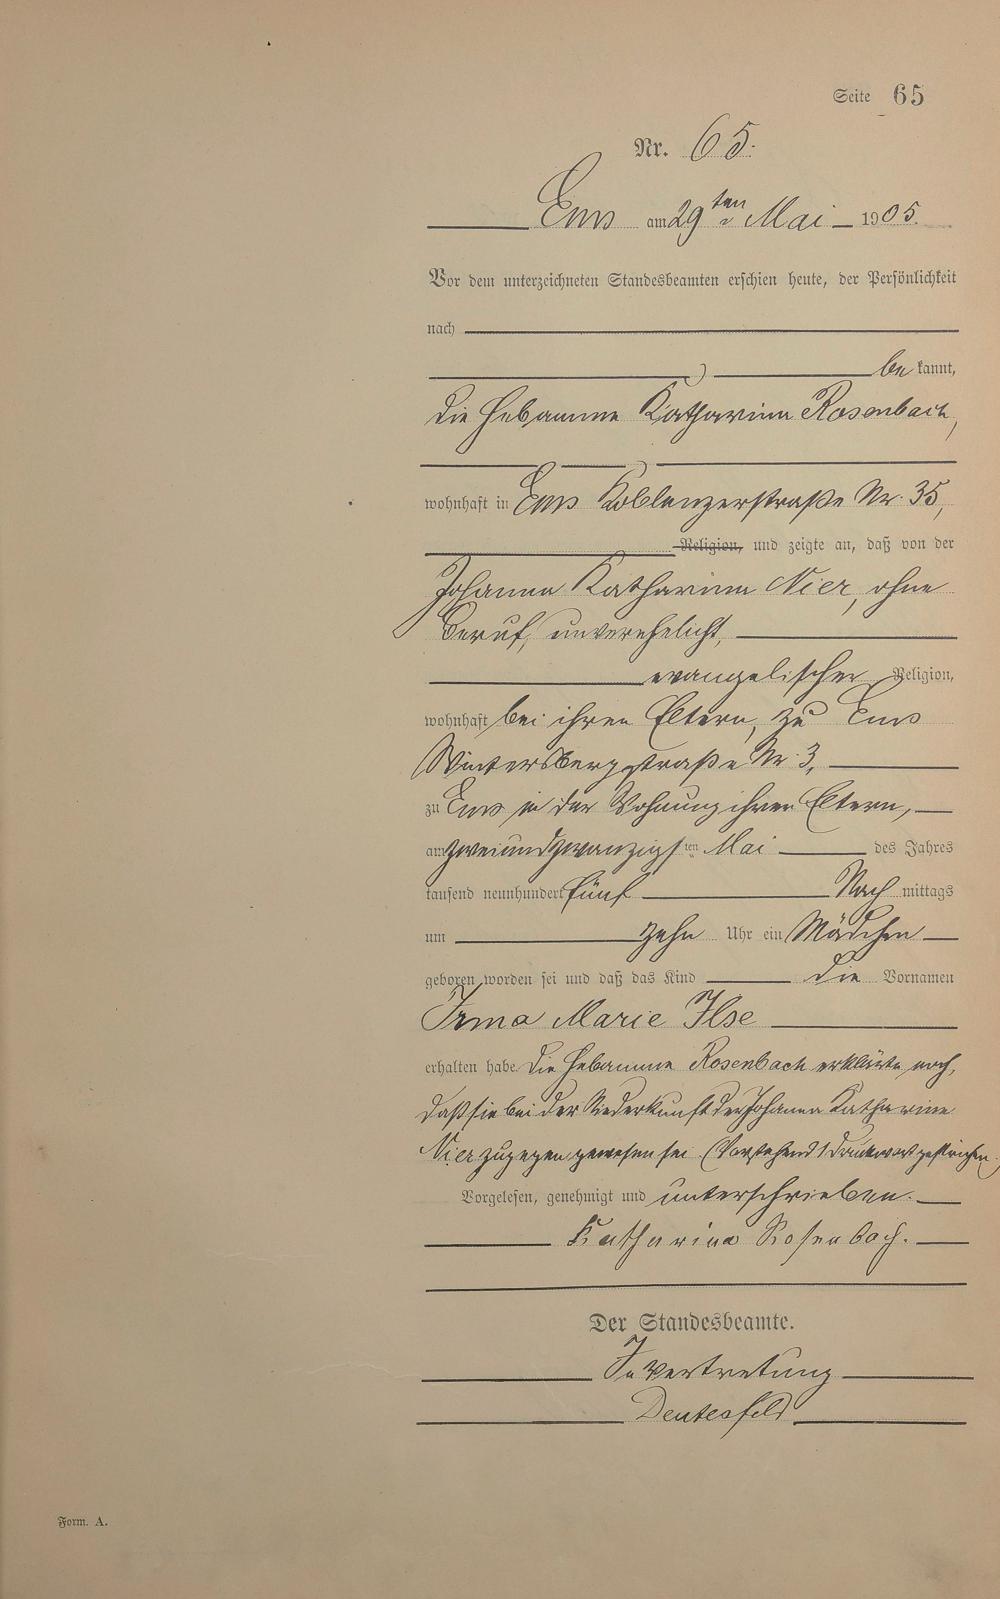 Seite 65
Nr. 65.
Ems am 29ten Mai 1905.
Vor dem unterzeichneten Standesbeamten erschien heute, der Persönlichkeit
nach
be kannt,
die Hebamme Katharina Rosenbach,
wohnhaft in Ems Koblenzerstraße Nr. 35,
Religion, und zeigte an, daß von der
Johanna Katharina Nier, ohne
Beruf, unverehelicht,
evangelischer Religion,
wohnhaft bei ihren Eltern, zu Ems
Wintersbergstraße Nr. 3,
zu Ems in der Wohnung ihrer Eltern,
am zweiundzwanzigsten Mai des Jahres
tausend neunhundert fünf Nach mittags
um zehn Uhr ein Mädchen
geboren worden sei und daß das Kind die Vornamen
Irma Marie Ilse
erhalten habe. Die Hebamme Rosenbach erklärte noch,
daß sie bei der Niederkunft der Johanna Katharina
Nier zugegen gewesen sei (Vorstehend 1 Druckwort gestrichen.)
Vorgelesen, genehmigt und unterschrieben.
Katharina Rosenbach.
Der Standesbeamte.
In Vertretung
Deutesfeld
Form. A.